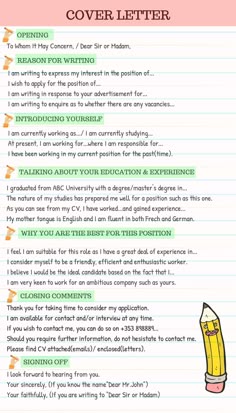 COVER LETTER
OPENING
To Whom It May Concern, / Dear Sir or Madam,
REASON FOR WRITING
I am writing to express my interest in the position of...
I wish to apply for the position of...
I am writing in response to your advertisement for...
I am writing to enquire as to whether there are any vacancies...
INTRODUCING YOURSELF
I am currently working as.../ I am currently studying...
At present, I am working for...where I am responsible for...
I have been working in my current position for the past(time).
TALKING ABOUT YOUR EDUCATION & EXPERIENCE
I graduated from ABC University with a degree/master's degree in...
The nature of my studies has prepared me well for a position such as this one.
As you can see from my CV, I have worked...and gained experience...
My mother tongue is English and I am fluent in both Frech and German.
WHY YOU ARE THE BEST FOR THIS POSITION
I feel I am suitable for this role as I have a great deal of experience in...
I consider myself to be a friendly, efficient and enthusiastic worker.
I believe I would be the ideal candidate based on the fact that I...
I am very keen to work for an ambitious company such as yours.
CLOSING COMMENTS
Thank you for taking time to consider my application.
I am available for contact and/or interview at any time.
If you wish to contact me, you can do so on +353 898889...
Should you require further information, do not hesistate to contact me.
Please find CV attached(emails)/ enclosed(letters).
SIGNING OFF
I look forward to hearing from you.
Your sincerely, (If you know the name"Dear Mr John")
Your faithfully, (If you are writing to "Dear Sir or Madam)